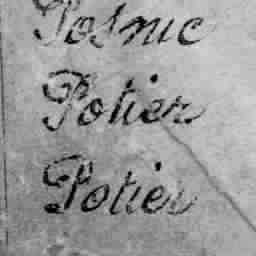 Posnic
Potier
Potier